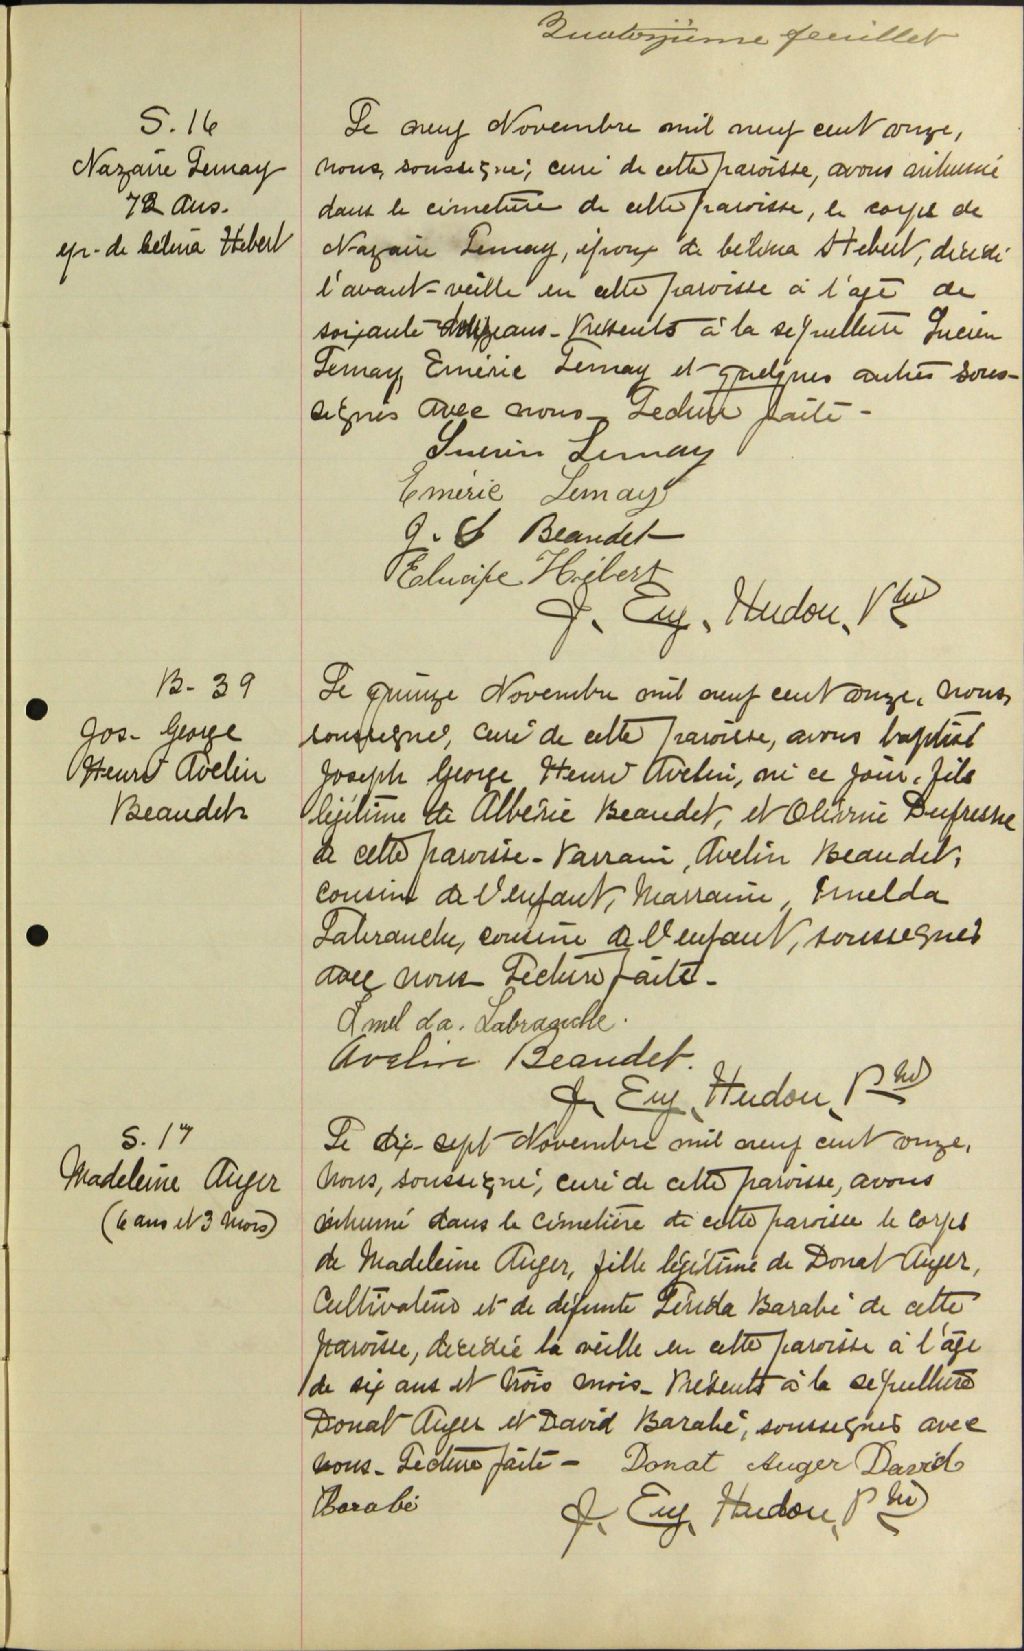 Quatorzième feuillet
S. 16
Nazaire Lemay
72 ans.
ép. de Célina Hébert
Le neuf Novembre mil neuf cent onze,
nous, soussigné, curé de cette paroisse, avons inhumé
dans le cimetière de cette paroisse, le corps de
Nazaire Lemay, époux de Célina Hébert, décédé
l'avant-veille en cette paroisse à l'age de
soixante ans - Présents à la sépulture Lucien
Lemay, Emérie Lemay et quelques autres sous-
signés avec nous - Lecture faite -
Lucien Lemay
Emérie Lemay
Beaudet
Hébert
J. Eug. Hudon, Ptre
B. 39
Jos. George
Henri Avelin
Beaudet
Le quinze Novembre mil neuf cent onze, nous,
soussigné, curé de cette paroisse, avons baptisé
Joseph George Henri Avelin, né ce jour, fils
légitime de Albérie Beaudet, et Olivine Dufresne
de cette paroisse - Parrain, Avelin Beaudet,
cousin de l'enfant, Marraine, Imelda
Labranche, cousine de l'enfant, soussignés
avec nous - Lecture faite -
Imelda. Labranche.
Avelin Beaudet.
J. Eug. Hudon, Ptre
S. 17
Madeleine Auger
(6 ans et 3 mois)
Le dix-sept Novembre mil neuf cent onze,
nous, soussigné, curé de cette paroisse, avons
inhumé dans le cimetière de cette paroisse le corps
de Madeleine Auger, fille légitime de Donat Auger,
Cultivateur et de défunte Barabé de cette
paroisse, décédée la veille en cette paroisse à l'âge
de six ans et trois mois - Présents à la sépulture
Donat Auger et David Barabé, soussignés avec
nous - Lecture faite - Donat Auger David
Barabé
J. Eug. Hudon, Ptre